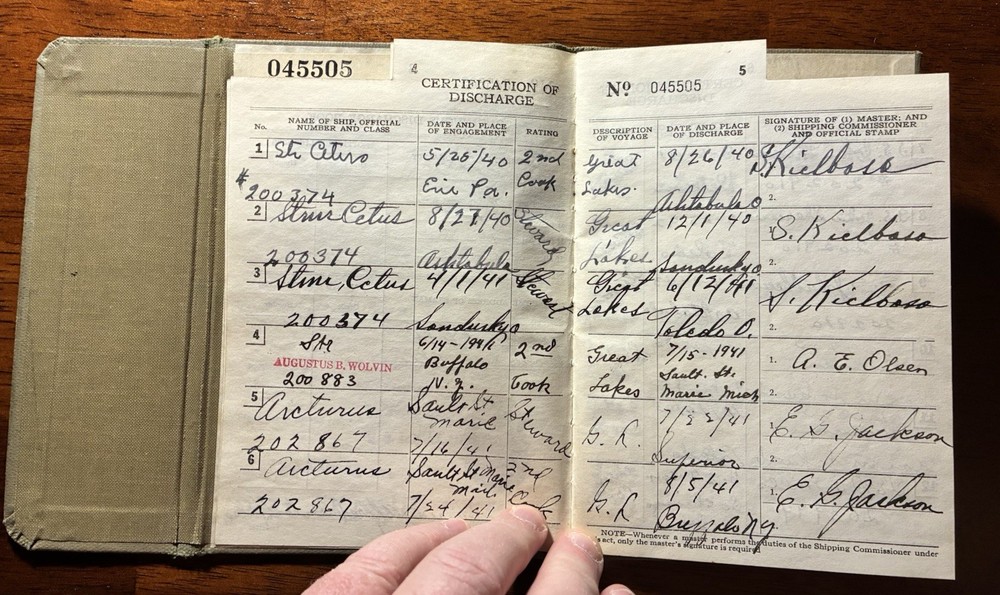 045505
4
CERTIFICATION OF
DISCHARGE
No.
NAME OF SHIP, OFFICIAL
NUMBER AND CLASS
DATE AND PLACE
OF ENGAGEMENT
RATING
1
Str
5/25/40
2nd
#200374
Erie Pa.
Cook
2
Stmr Cetus
8/27/40
Steward
200374
Ashtabula
3
Stmr Cetus
4/1/41
Steward
200374
Sandusky O
4
Str
6/14-1941
2nd
AUGUSTUS B. WOLVIN
Buffalo
200883
N.Y.
Cook
5
Arcturus
Sault St
Marie
Steward
202867
7/16/41
6
Arcturus
Sault St Marie
Mich
2nd
202867
7/24/41
5
No 045505
DESCRIPTION
OF VOYAGE
DATE AND PLACE
OF DISCHARGE
SIGNATURE OF (1) MASTER; AND
(2) SHIPPING COMMISSIONER
AND OFFICIAL STAMP
Great
8/26/40
S. Kielbaso
Lakes.
Ashtabula O
2.
Great
12/1/40
1.
S. Kielbaso
Lakes
Sandusky O.
2.
Great
6/12/41
S. Kielbaso
Lakes
Toledo O.
2.
Great
7/15-1941
1.
A. E. Olsen
Sault. St.
Lakes
Marie Mich
2.
G. L.
7/22/41
1.
E. G. Jackson
Superior
2.
G. L
8/5/41
1.
E. G. Jackson
Buffalo N.Y.
NOTE—Whenever a master performs the duties of the Shipping Commissioner under
act, only the master's signature is required